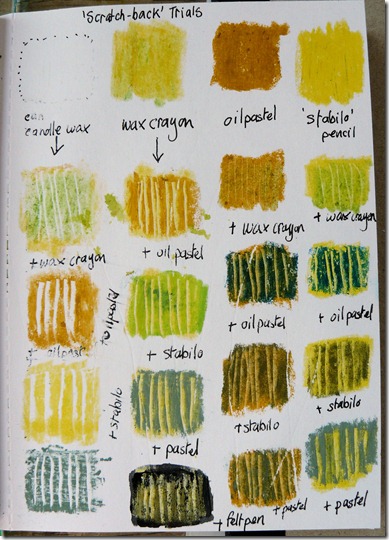 'Scratch-back' Trials
candle wax
wax crayon
oilpastel
'stabilo' pencil
+ wax crayon
+ oil pastel
+ wax crayon
+ wax crayon
+ oilpastel
+ oilpastel
+ stabilo
+ oil pastel
+ oil pastel
+ stabilo
+ pastel
+ stabilo
+ stabilo
+ felt pen
+ pastel
+ pastel